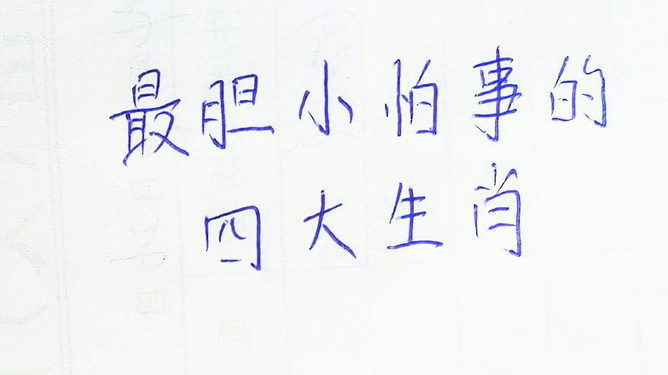 最胆小怕事的
四大生肖